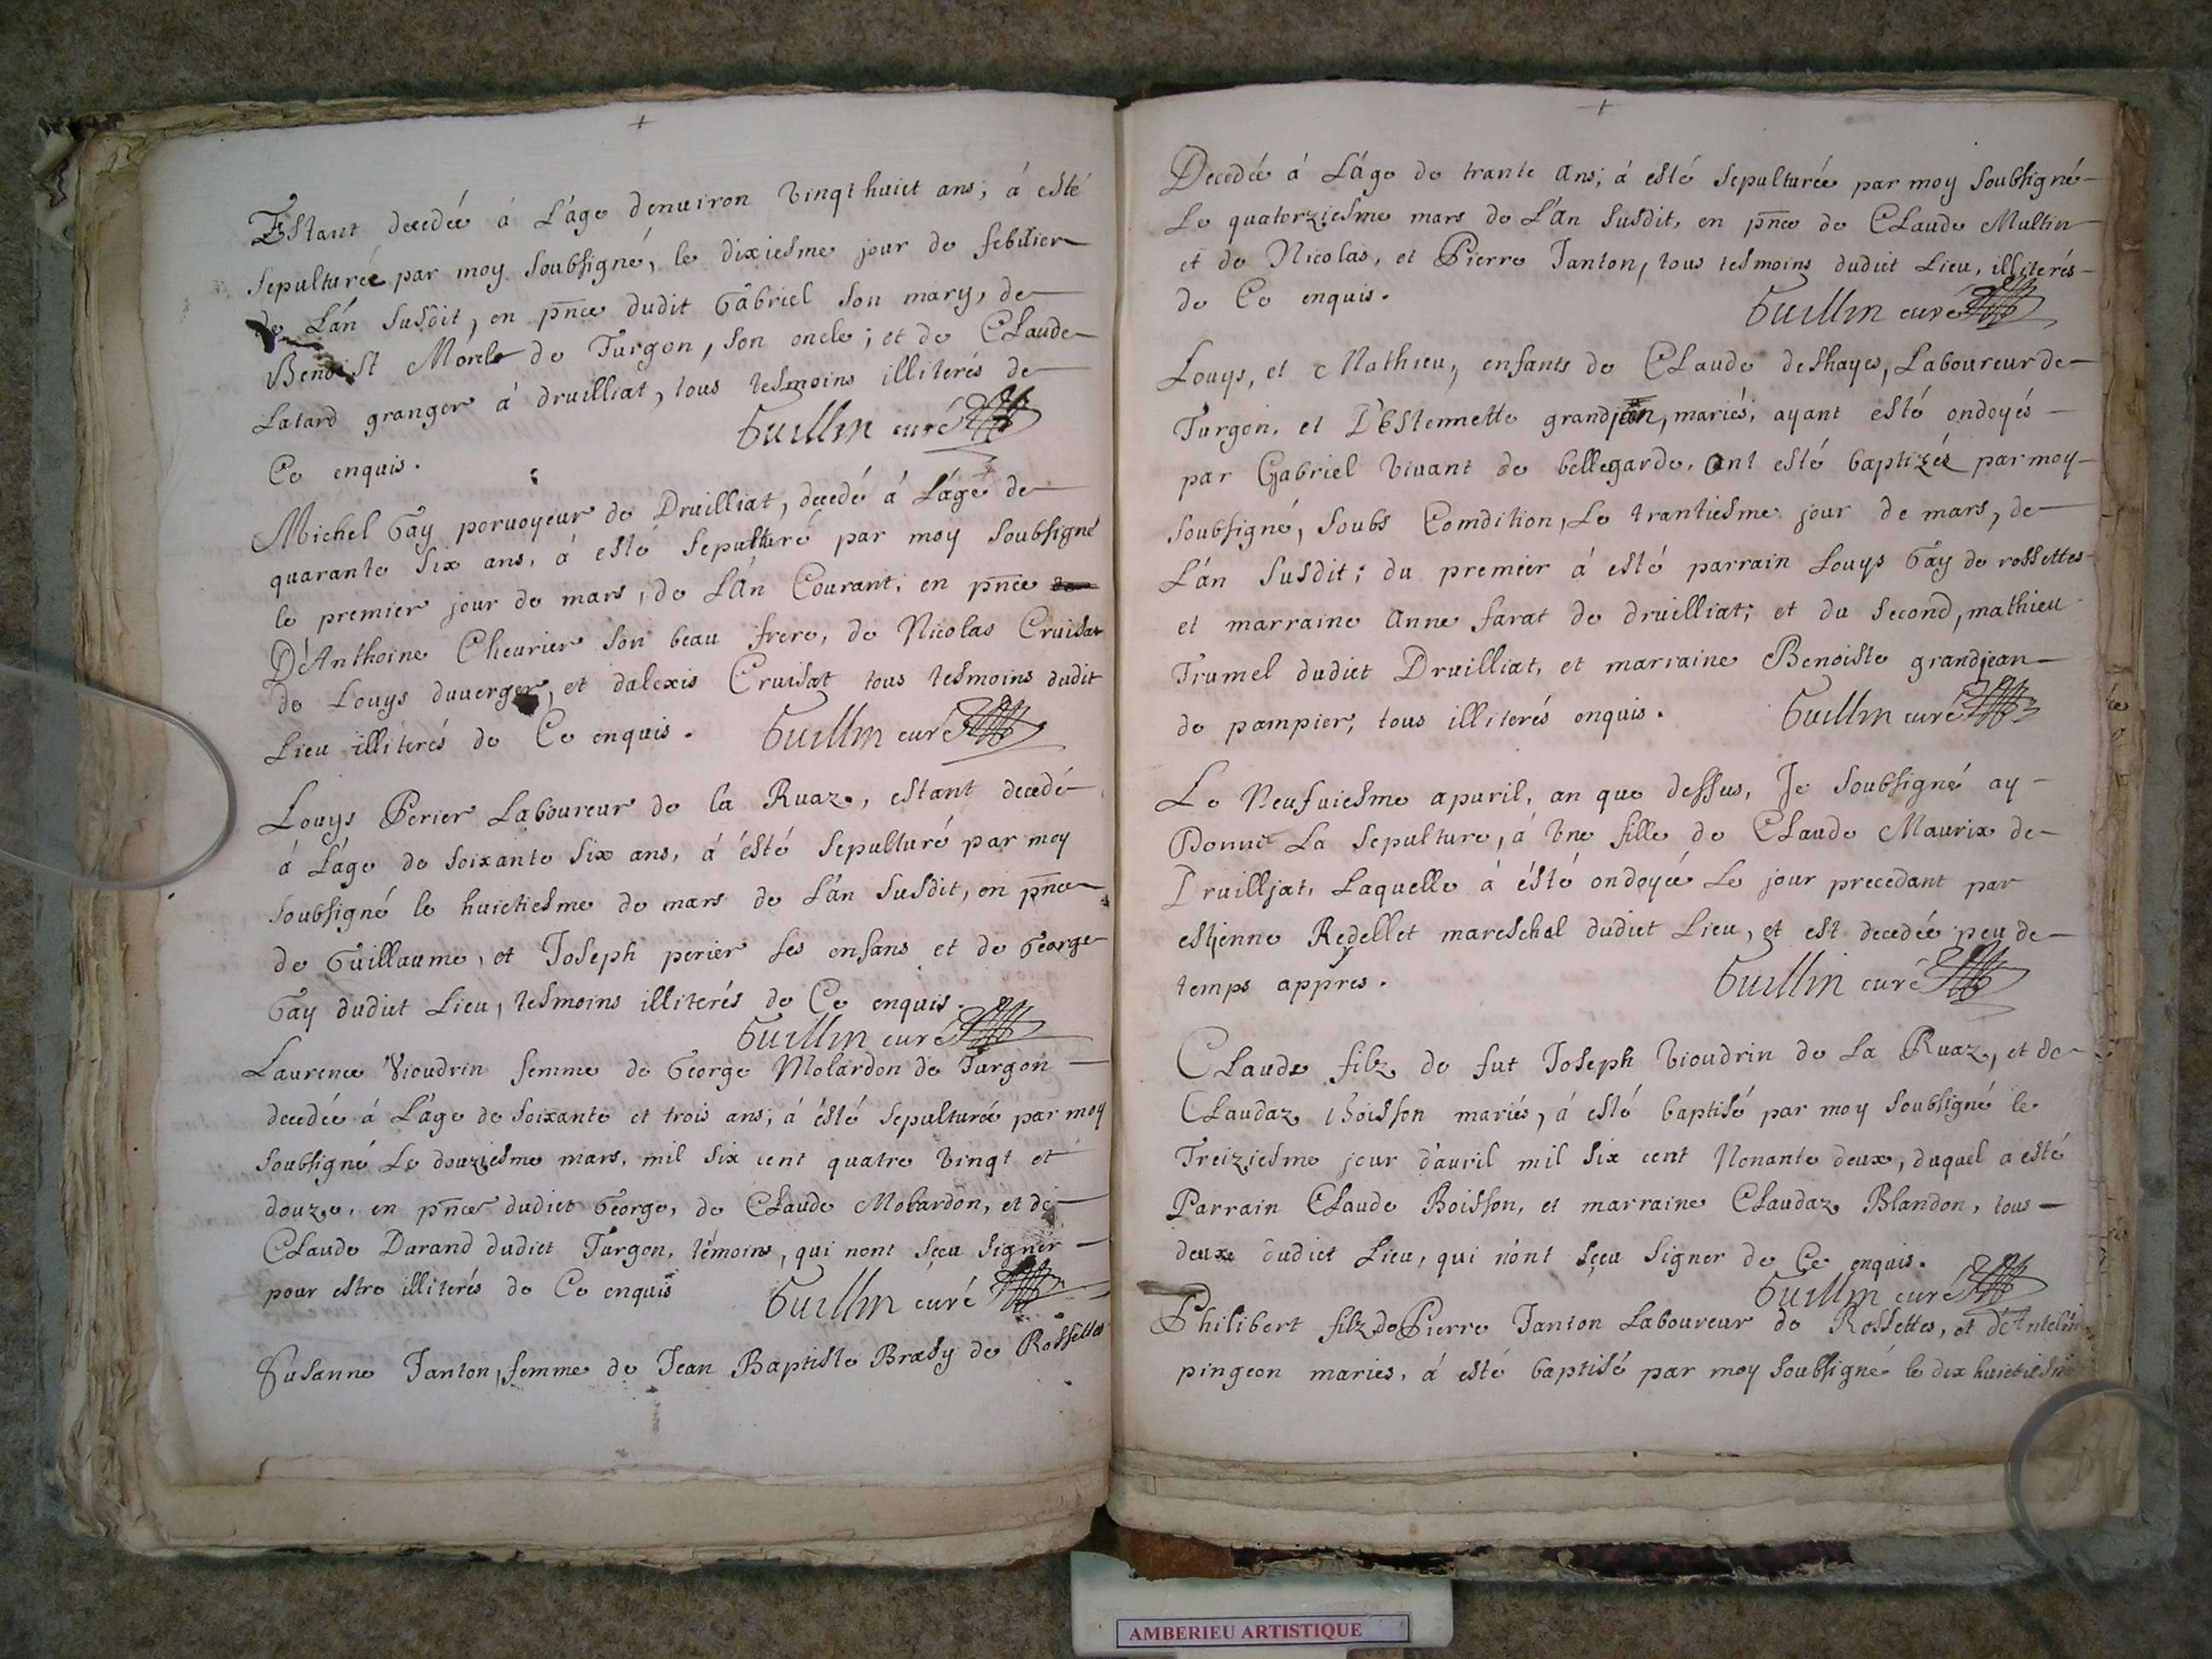 Estant decedée á L'áge denuiron vingt huict ans, á esté
sepulturée par moy soubsigné, le dixiesme jour de feburier
de L'án susdit, en pñce dudit Gabriel son mary, de
Benoist Morel de Turgon, son oncle; et de CLaude
Latard granger á druilliat, tous tesmoins illiterés de
Ce enquis.
Guillin curé
Michel Gay poruoyeur de Druilliat, decedé á L'áge de
quarante six ans, á esté sepulturé par moy soubsigné
le premier jour de mars, de L'An Courant, en pñce
D'Anthoine Cheurier son beau frere, de Nicolas Cruisat
de Louys duuerger, et dalexis Cruisat tous tesmoins dudit
Lieu illiterés de Ce enquis. Guillin curé
Louys Perier Laboureur de la Ruaz, estant decedé
á L'áge de soixante six ans, á ésté sepulturé par moy
soubsigné le huictiesme de mars de L'án susdit, en pñce
de Guillaume, et Joseph perier ses enfans et de George
Gay dudict Lieu, tesmoins illiterés de Ce enquis.
Guillin curé
Laurence Vioudrin femme de George Molardon de Turgon
decedée á L'áge de soixante et trois ans; á ésté sepulturée par moy
soubsigné Le douziesme mars, mil six cent quatre vingt et
douze, en pñce dudict George, de CLaude Molardon, et de
CLaude Darand dudict Turgon, témoins, qui nont sçeu signer
pour estre illiterés de Ce enquis Guillin curé
Susanne Janton, femme de Jean Baptiste Brasy de Rossettes
Decedée á L'áge de trante Ans; á esté sepulturée par moy soubsigné
Le quatorziesme mars de L'An susdit, en pñce de CLaude Multin
et de Nicolas, et Pierre Janton, tous tesmoins dudict Lieu, illiterés
de Ce enquis.
Guillin curé
Louys, et Mathieu, enfants de CLaude deshayes, Laboureur de
Turgon, et D'Estennette grandjean, mariés; ayant esté ondoyés
par Gabriel Viuant de bellegarde, Ont esté baptizés par moy
soubsigné, soubs Comdition, Le trantiesme jour de mars, de
L'án susdit; du premier á esté parrain Louys Gay de rossettes
et marraine Anne farat de druilliat; et du second, mathieu
Trumel dudict Druilliat, et marraine Benoiste grandjean
de pampier, tous illiterés enquis. Guillin curé
Le Neufuiesme apuril, an que dessus, Je soubsigné ay
Donné La sepulture, á Vne fille de CLaude Maurix de
Druilljat, Laquelle á ésté ondoyée Le jour precedant par
estienne Reydellet mareschal dudict Lieu, et est decedée peu de
temps appres. Guillin curé
CLaude filz de fut Joseph Vioudrin de La Ruaz, et de
CLaudaz Boisson mariés, á esté baptisé par moy soubsigné le
Treiziesme jour d'auril mil six cent Nonante deux, duquel a esté
Parrain CLaude Boisson, et marraine CLaudaz Blandon, tous
deux dudict Lieu, qui n'ont sçeu signer de Ce enquis.
Guillin curé
Philibert filz de Pierre Janton Laboureur de Rossettes, et d'Antel
pingeon mariés, á esté baptisé par moy soubsigné le dix huictiesme
AMBERIEU ARTISTIQUE